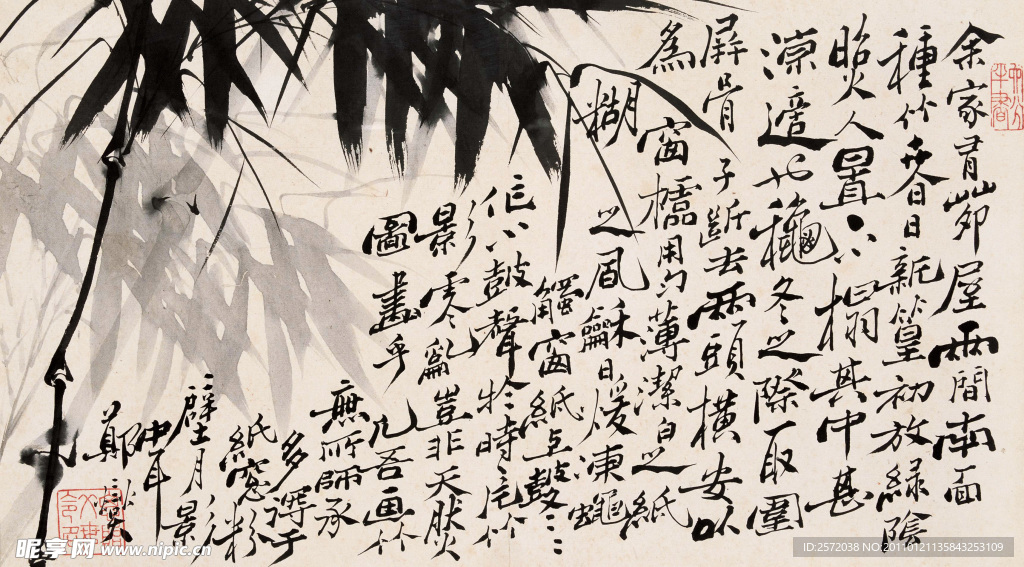 余家有茆屋兩間南面
種竹夏日新篁初放綠陰
照人置小榻其中甚
涼適也穐冬之際取圍
屏骨子斷去兩頭橫安以
為窗櫺用勻薄潔白之紙
糊之風龢日煖凍蠅
觸窗紙上鼕鼕
作小鼓聲於時一片竹
影零亂豈非天然
圖畫乎凡吾画竹
無所師承
多得于
紙窓粉
壁月影
中耳
鄭燮
昵享网 www.nipic.cn
ID:2572038 NO:20110121135843253109